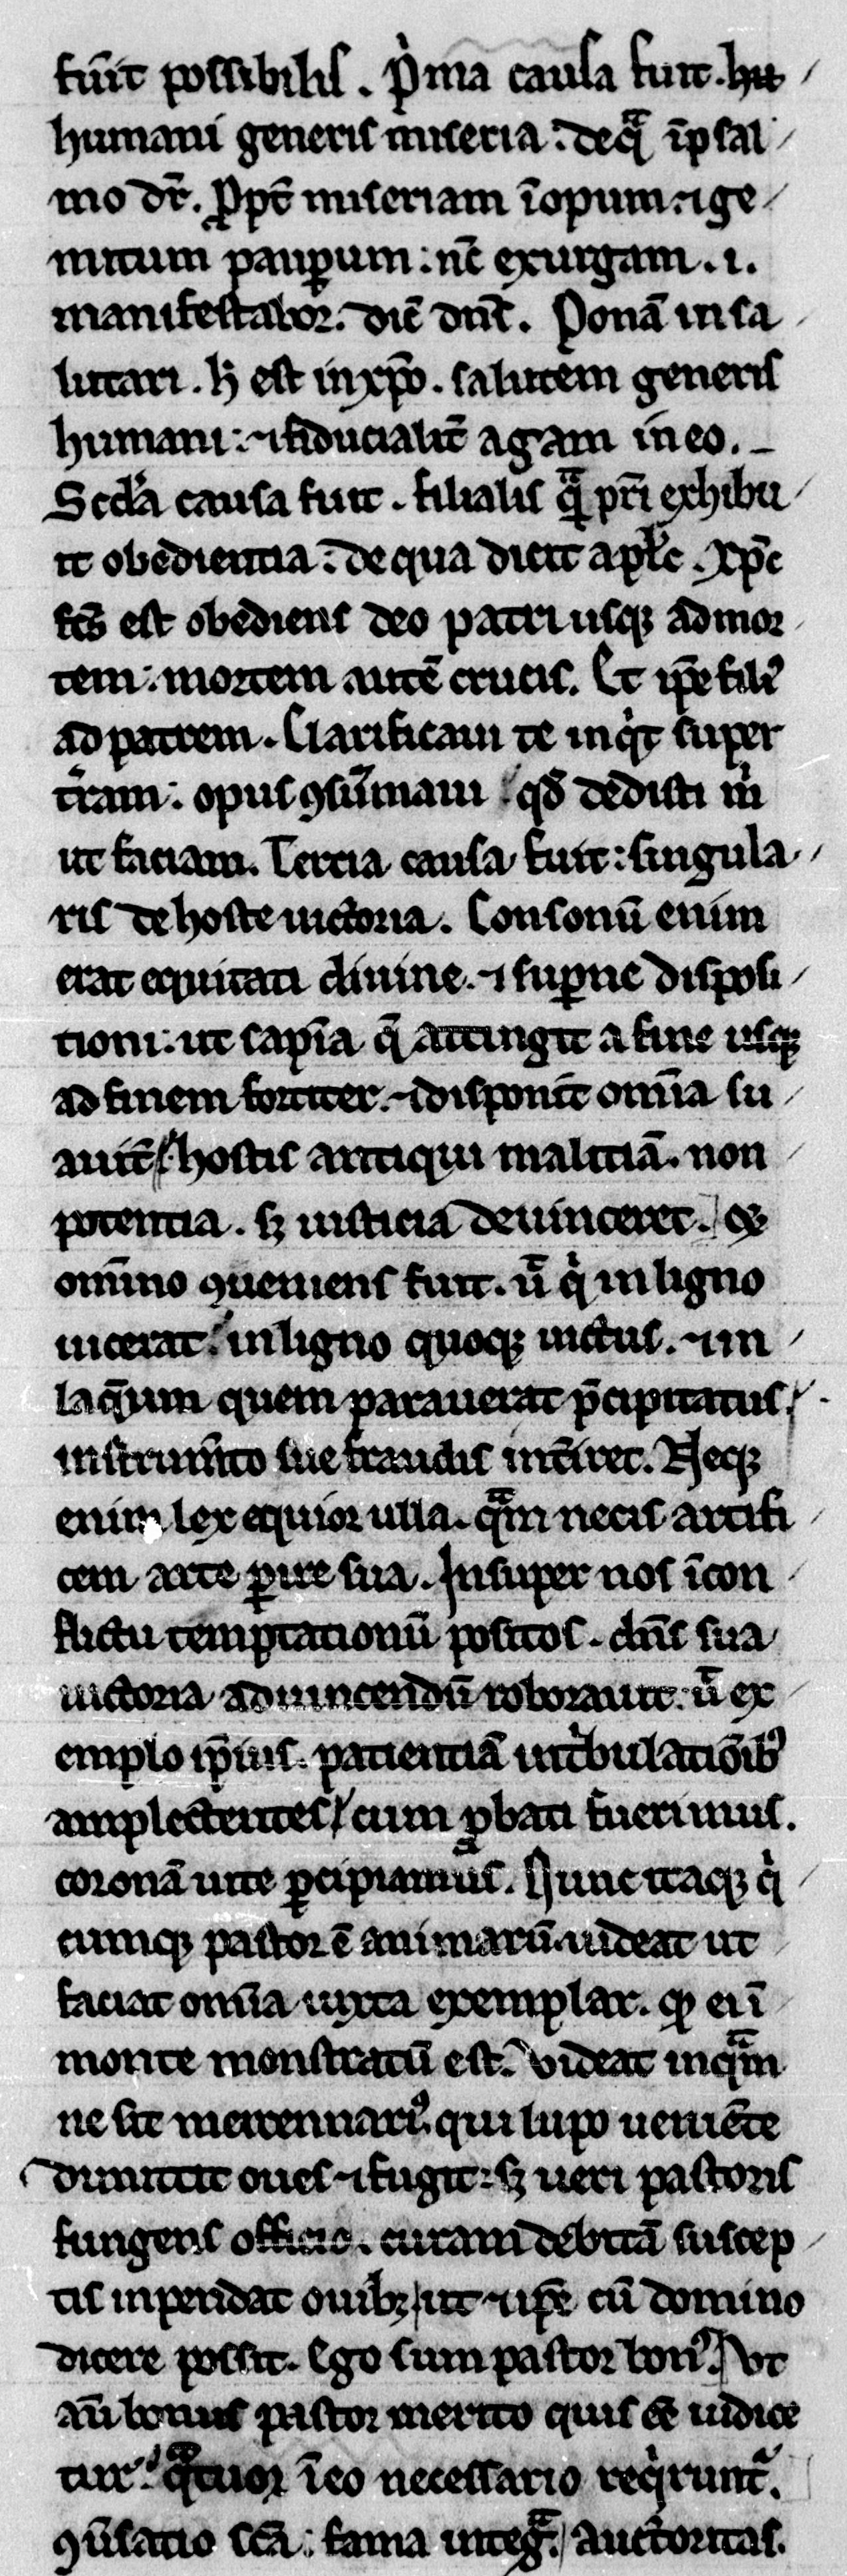 fuit possibilis. P'ma causa fuit. hu
humani generis miseria: de qͣ ī psal
mo dr̄. ꝓpt̄ miseriam īopum: ⁊ ge
mitum pauꝑum: nc̄ exurgam. i.
manifestabor. dic̄ dn̄s. Ponā in sa
lutari. h̄ est in xp̄o. salutem generis
humani: ⁊ fiducialit̄ agam in eo.
Scd̓a causa fuit. filialis qͣ̄ pr̄i exhibu
it obedientia: de qua dicit apl̓s. Xp̄c
fc̄s est obediens deo patri usqꝫ ad mor
tem: mortem autē crucis. Et ip̄e filiꝰ
ad patrem. Clarificaui te inq̇t super
tr̄am: opus ꝯsūmaui qd̄ dedisti m̓
ut faciam. Tercia causa fuit: singula
ris de hoste uictoria. Consonū enim
erat equitati diuine. ⁊ suꝑne disposi
tioni: ut sapīa q̄ attingit a fine usqꝫ
ad finem fortiter. ⁊ disponit om̄ia su
auit̄ hostis antiqui malitiā. non
potentia. sꝫ iusticia deuinceret. Qꝫ
om̄ino ꝯueniens fuit. ū q̇ in ligno
uicerat: in ligno quoqꝫ uictus. ⁊ in
laq̄um quem parauerat p̄cipitatus.
instrum̄to sue fraudis int̄iret. Neqꝫ
enim lex equior ulla. qͣm necis artifi
cem arte ꝑire sua. Insuper nos ī con
flictu temptationū positos. dn̄s sua
uictoria ad uincendū roborauit: ū ex
emplo ip̄ius. patientiā in t̓bulatiōibꝰ
amplectentes cum ꝓbati fuerimus.
coronā uite ꝑcipiamus. Nunc itaqꝫ q̇
cumqꝫ pastor ē animarū. uideat ut
faciat om̄ia iuxta exemplar. qḋ ei ī
monte monstratū est. Videat inqͣm
ne sit mercennariꝰ. qui lupo ueniēte
dimittit oues ⁊ fugit: sꝫ ueri pastoris
fungens officio. curam debitā suscep
tis inpendat ouibꝫ ut ⁊ ip̄e cū domino
dicere possit. Ego sum pastor bonꝰ. Vt
aū bonus pastor merito quis ee̅ iudice
tur: qͣtuor ī eo necessario req̇runt᷑.
ꝯū̓satio sc̄a: fama integͣ. auctoritas.